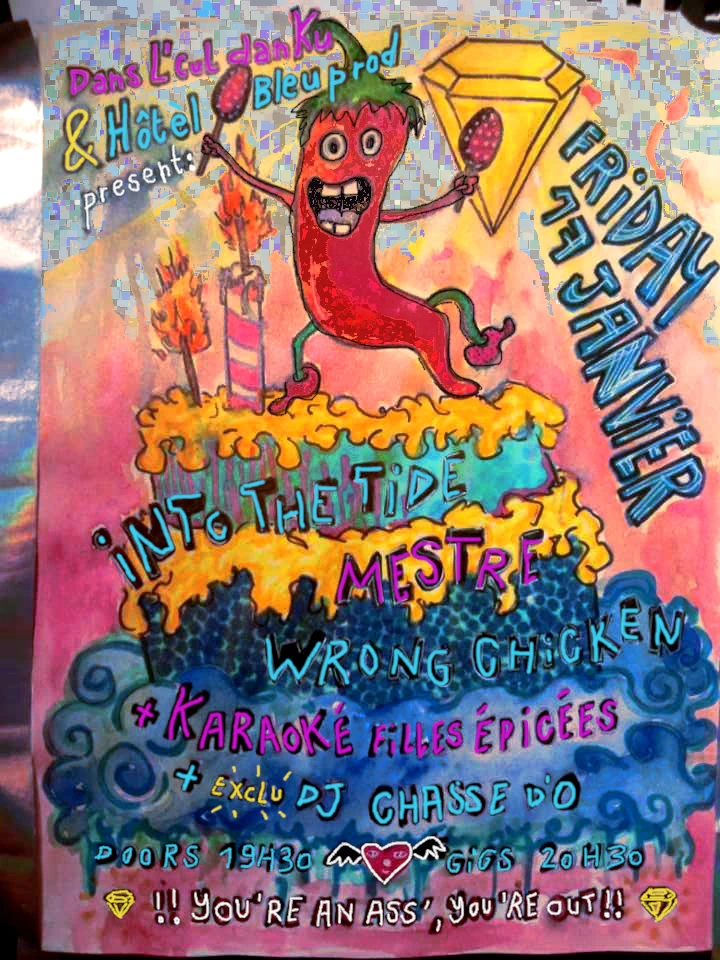 Dans L'cul danKu
& Hôtèl Bleu prod
present:
FRiDAY
17 JANViER
iNTO THE TiDE
MESTRE
WRONG CHiCKEN
+ KARAOKÉ FiLLES ÉPiCÉES
+ EXCLU DJ CHASSE D'O
DOORS 19H30 GiGS 20H30
!! YOU'RE AN ASS', YOU'RE OUT!!